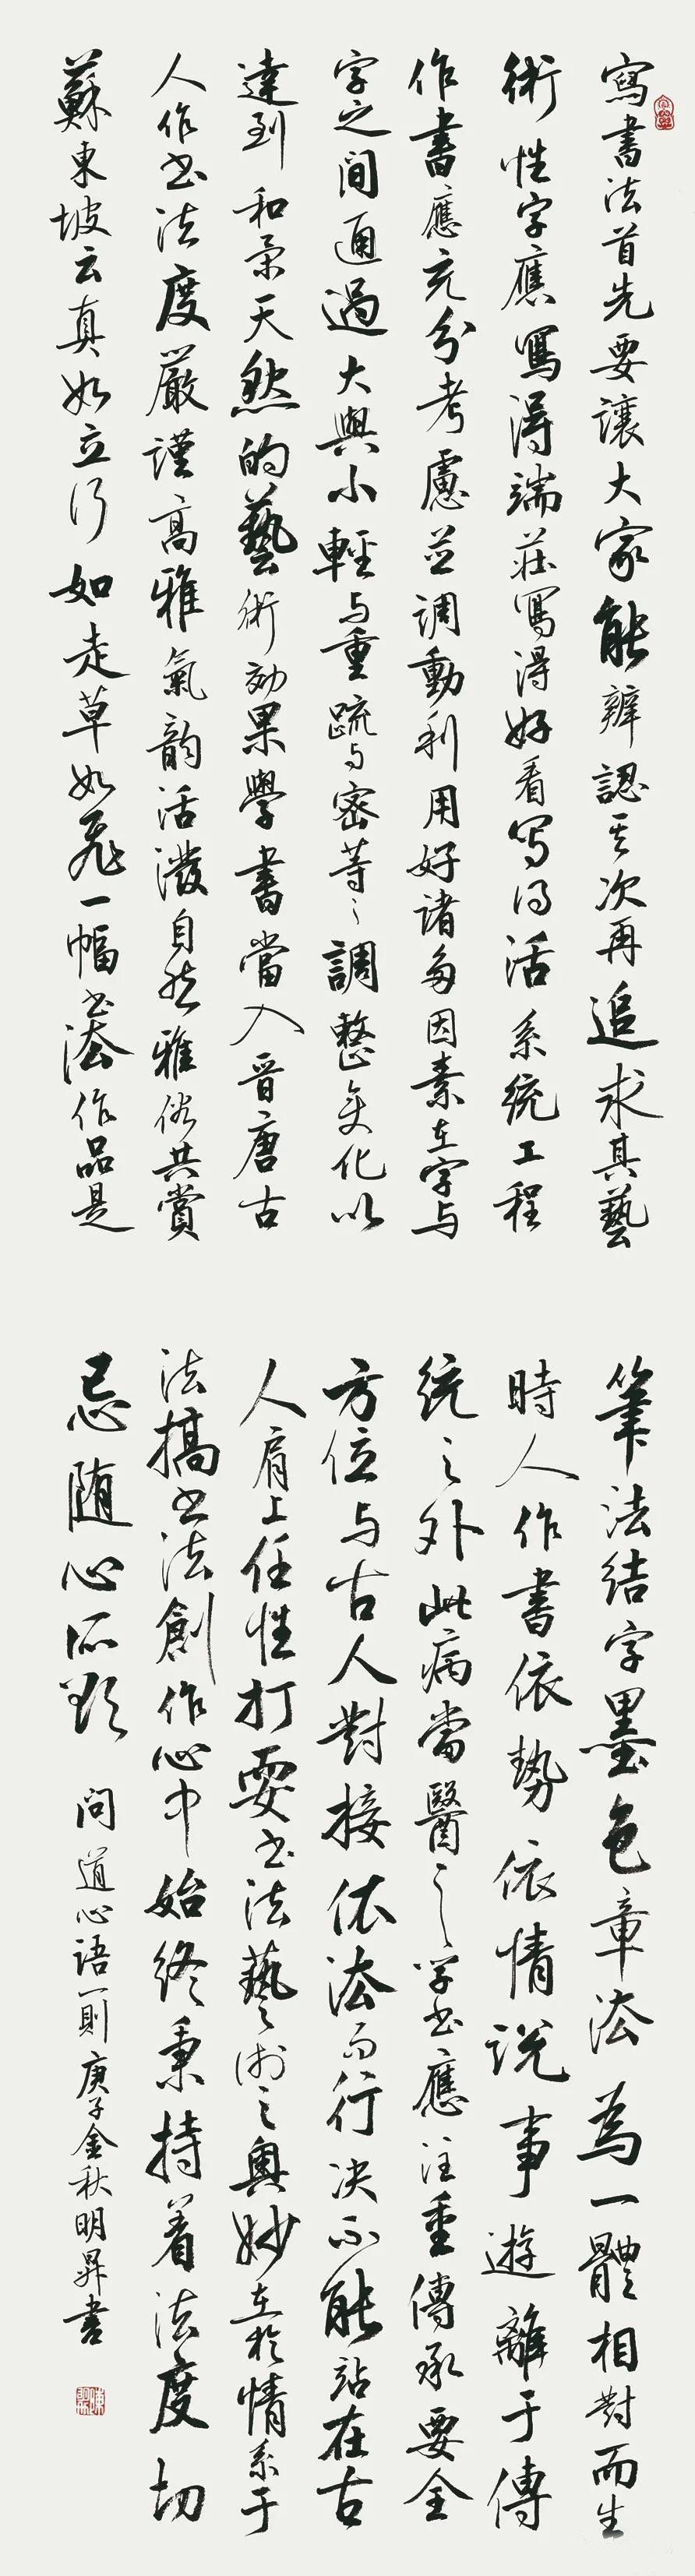 寫書法首先要讓大家能辨認其次再追求其藝
術性字應寫得端莊寫得好看写得活系統工程
作書應充分考慮並調動利用好諸多因素在字与
字之间通過大與小輕与重疏与密等等調整變化以
達到和柔天然的藝術效果學書當入晋唐古
人作书法度嚴謹高雅氣韵活潑自然雅俗共賞
蘇東坡云真如立行如走草如飛一幅书法作品是
筆法結字墨色章法為一體相對而生
時人作書依勢依情説事遊離于傳
統之外此病當醫之學书應注重傳承要全
方位与古人對接依法而行决不能站在古
人肩上任性打耍书法藝術之奥妙在於情系于
法搞书法創作心中始終秉持着法度切
忌随心所欲
问道心語一則庚子金秋明昇書